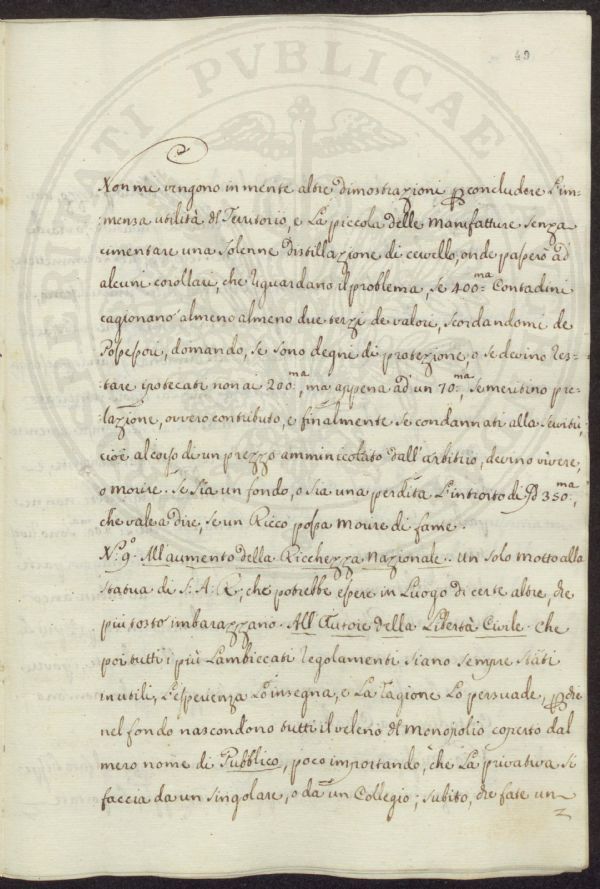 49
PERITATI PVBLICAE
Non me vengono in mente altre dimostrazioni p concludere l'im=
:menza utilità dl Territorio, e La piccola delle Manifatture senza
cimentare una solenne distillazione di cervello, onde passerò ad
alcuni corollari, che riguardano il problema, se 400:ma Contadini
cagionano almeno almeno due terzi de valori, scordandomi de
Possessori, domando, se sono degni di protezione, o se devino res=
:tare ipotecati non ai 200:ma, ma appena ad un 70:ma, se meritino pre=
:lazione, ovvero contributo, e finalmente se condannati alla servitù,
cioè al corso di un prezzo amminicolato dall'arbitrio, devino vivere,
o morire. Se sia un fondo, o sia una perdita L'introito di 350:ma,
che vale a dire, se un Ricco possa morire di fame.
N.º 9.º All'aumento della Ricchezza Nazionale.. un solo motto alla
statua di S: A: R:, che potrebbe essere in Luogo di certe altre, che
più tosto imbarazzano. All'Autore della Libertà Civile. Che
poi tutti i più Lambiccati regolamenti siano sempre stati
inutili, L'esperienza Lo insegna, e La ragione Lo persuade, p che
nel fondo nascondono tutti il veleno dl monopolio coperto dal
mero nome di Pubblico, poco importando, che La privativa si
faccia da un singolare, o da un Collegio; subito, che fate un